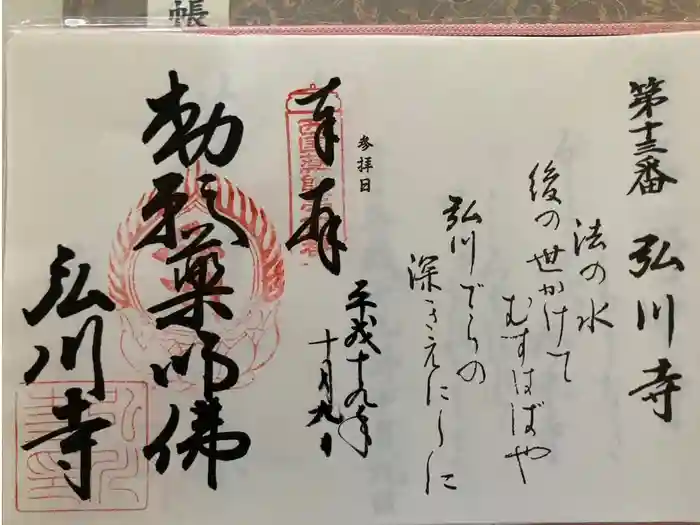 帳
第十三番 弘川寺
法の水
後の世かけて
むすはばや
弘川でらの
深きえにしに
参拝日
奉拝
平成十九年
十月九日
勅願薬師佛
弘川寺